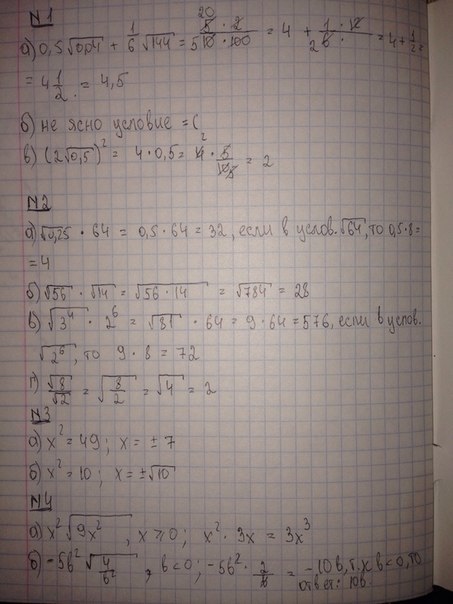 N1
а) 0,5√0,04 + 1/6 √144 = 5/10 · 2/100 = 4 + 1/6 · 12 = 4 + 1/2 =
= 4 1/2 = 4,5
б) не ясно условие =(
в) (2√0,5)² = 4 · 0,5 = 4 · 5/10 = 2
N2
а) √0,25 · 64 = 0,5 · 64 = 32, если в услов. √64, то 0,5 · 8 =
= 4
б) √56 · √14 = √56 · 14 = √784 = 28
в) √3⁴ · 2⁶ = √81 · 64 = 9 · 64 = 576, если в услов.
√2⁶, то 9 · 8 = 72
г) √8/√2 = √8/2 = √4 = 2
N3
а) x² = 49; x = ± 7
б) x² = 10; x = ±√10
N4
а) x² √9x², x ≥ 0; x² · 3x = 3x³
б) -5b² √4/b², b < 0; -5b² · 2/b = -10b, т.к b < 0, то
ответ: 10b.